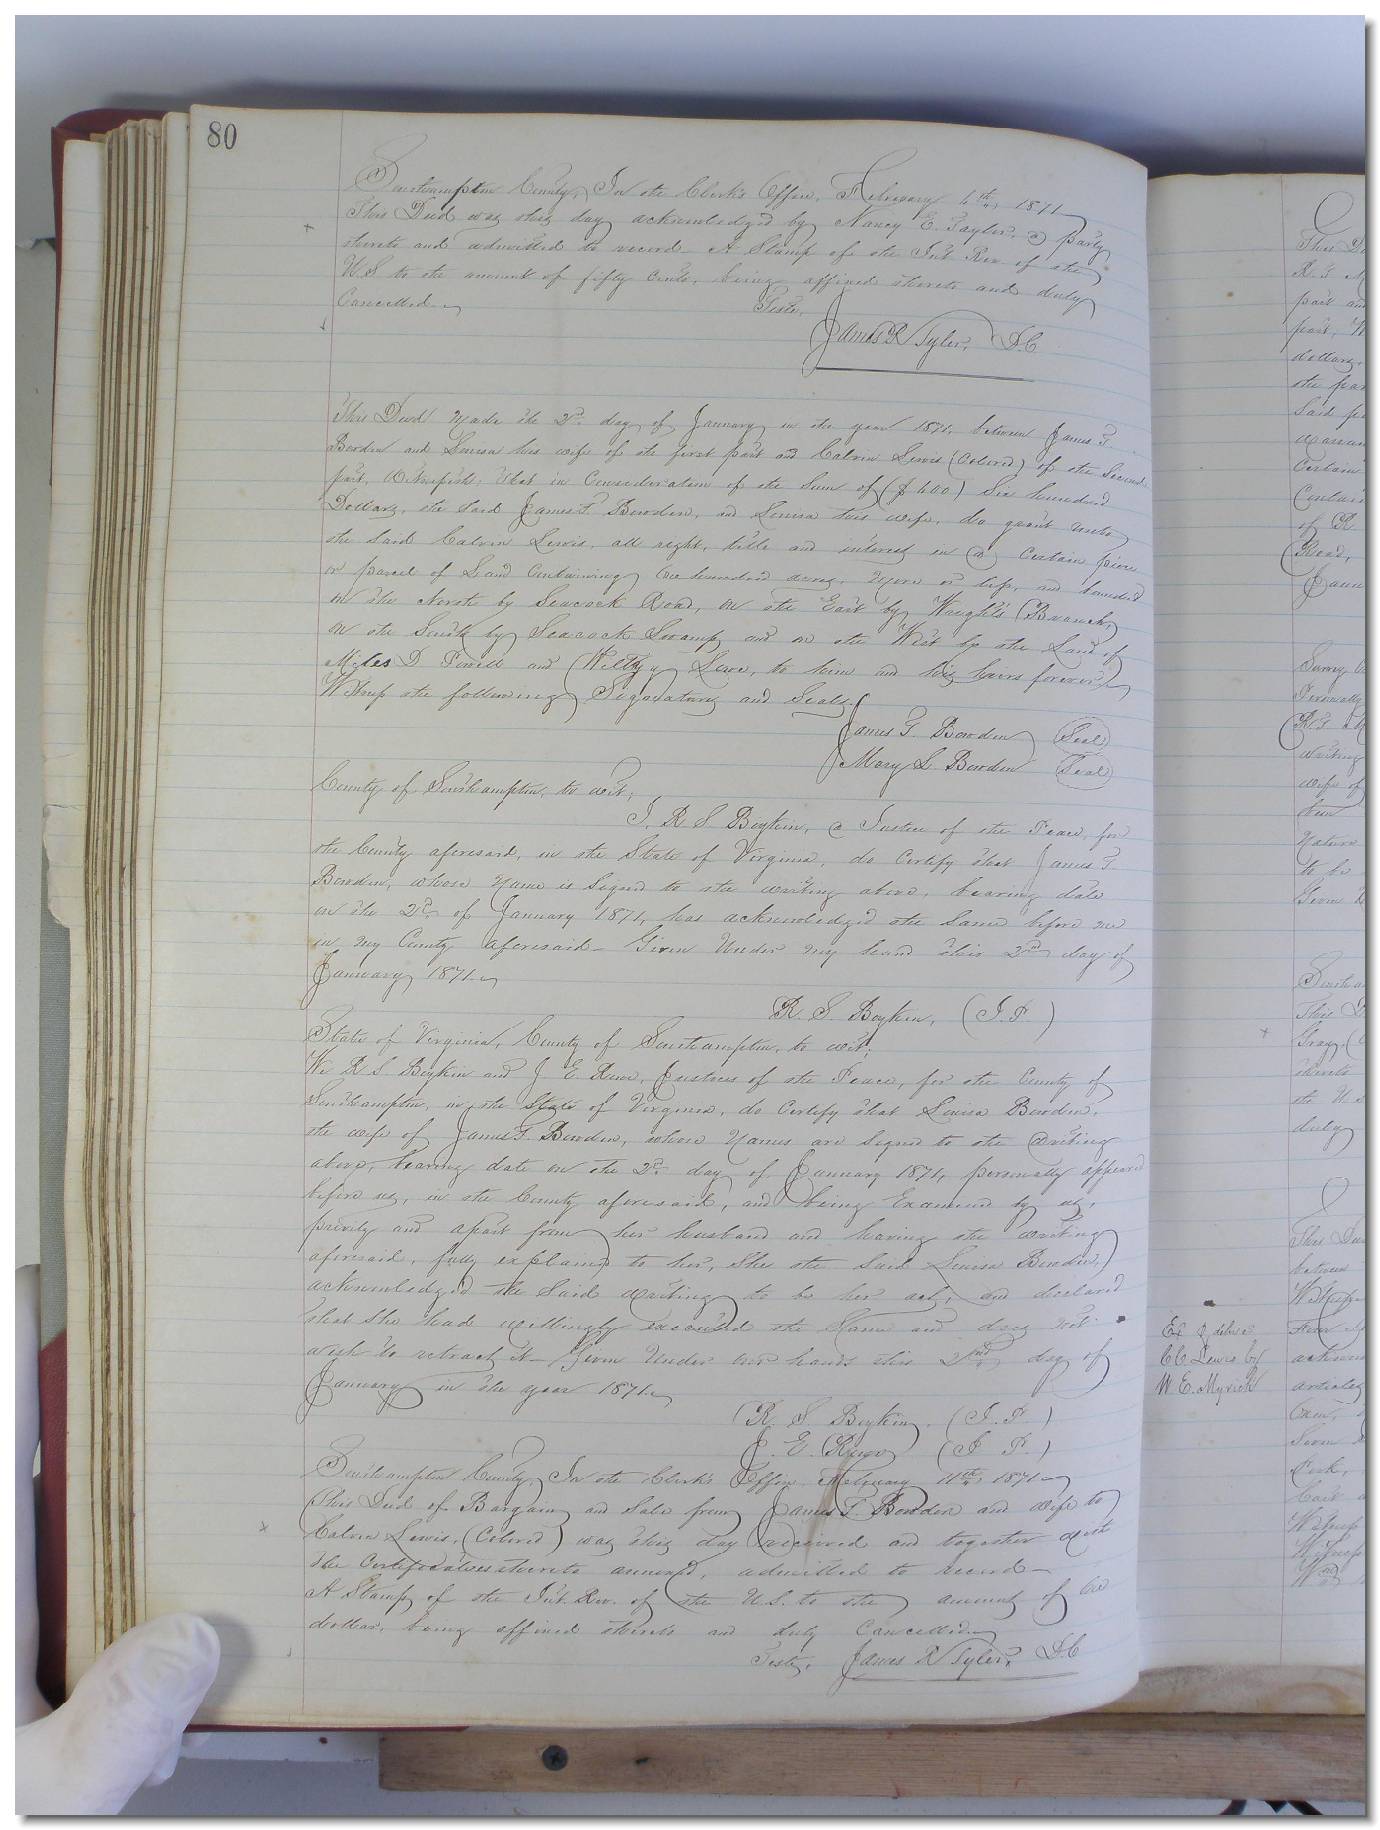 80
Southampton County, In the Clerk's Office, February 4th, 1871
This Deed was this day acknowledged by Nancy E. Taylor, a party
thereto and admitted to record A Stamp of the Int. Rev. of the
U.S. to the amount of fifty cents, being affixed thereto and duly
Cancelled
Teste,
James R Tyler, D.C
This Deed Made the 2nd day of January in the year 1871, between James T.
Bowden and Louisa his wife of the first part and Calvin Lewis (Colored) of the Second
part, Witnesseth: that in Consideration of the Sum of ($600) Six hundred
Dollars, the said James T. Bowden, and Louisa his wife, do grant unto
the Said Calvin Lewis, all right, title and interest in a Certain piece
or parcel of Land Containing One hundred acres, More or less, and bounded
on the North by Seacock Road, on the East by Waughts Branch,
on the South by Seacock Swamp and on the West by the Land of
Miles D Powell and Lowe, to him and his heirs forever.
Witness the following Signatures and Seals.
James T. Bowden (Seal)
Mary L Bowden (Seal)
County of Southampton, to wit;
I, R S Boykin, a Justice of the Peace, for
the County aforesaid, in the State of Virginia, do Certify that James T.
Bowden, whose Name is Signed to the writing above, bearing date
on the 2nd of January 1871, has acknowledged the Same before me
in my County aforesaid Given Under my hand this 2nd day of
January 1871.
R. S. Boykin, (J.P.)
State of Virginia, County of Southampton, to wit;
We R S Boykin and J E Rowe, Justices of the Peace, for the County of
Southampton, in the State of Virginia, do Certify that Louisa Bowden,
the wife of James T. Bowden, whose Names are Signed to the writing
above, bearing date on the 2nd day of January 1871, personally appeared
before us, in the County aforesaid, and being Examined by us,
privily and apart from her husband and having the writing
aforesaid, fully explained to her, She the Said Louisa Bowden,
acknowledged the Said writing to be her act, and declared
that She had willingly executed the Same and does not
wish to retract it Given Under our hands this 2nd day of
January in the year 1871.
R. S. Boykin. (J. P)
J. E. Rowe (J P)
Southampton County, In the Clerk's Office, February 11th, 1871
This Deed of Bargain and Sale from James T. Bowden and wife to
Calvin Lewis, (Colored) was this day received and together with
the Certificates thereto annexed, admitted to record
A Stamp of the Int. Rev. of the U.S. to the amount of One
dollar, being affixed thereto and duly Cancelled
Teste, James R Tyler, D.C
This D
part and
part, W
dollars,
the par
Said pa
Certain
of R
Road,
Personally
writing
wife of
Given
This D
Gray, (
thereto
the U.S
duly
between
Ex & deliv'd
C C Lewis by
W. E. Myrick